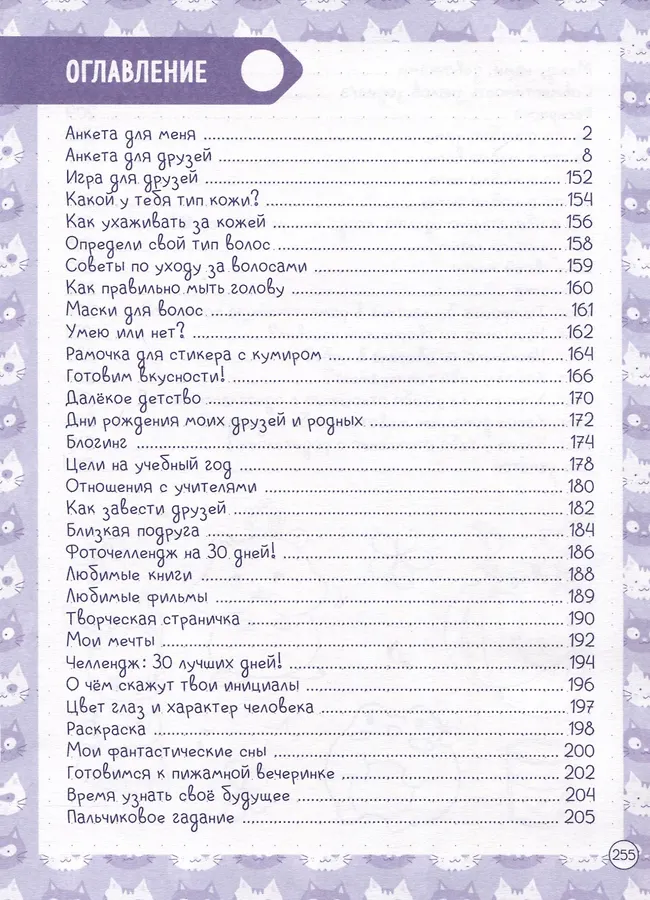 ОГЛАВЛЕНИЕ
Анкета для меня 2
Анкета для друзей 8
Игра для друзей 152
Какой у тебя тип кожи? 154
Как ухаживать за кожей 156
Определи свой тип волос 158
Советы по уходу за волосами 159
Как правильно мыть голову 160
Маски для волос 161
Умею или нет? 162
Рамочка для стикера с кумиром 164
Готовим вкусности! 166
Далёкое детство 170
Дни рождения моих друзей и родных 172
Блогинг 174
Цели на учебный год 178
Отношения с учителями 180
Как завести друзей 182
Близкая подруга 184
Фоточеллендж на 30 дней! 186
Любимые книги 188
Любимые фильмы 189
Творческая страничка 190
Мои мечты 192
Челлендж: 30 лучших дней! 194
О чём скажут твои инициалы 196
Цвет глаз и характер человека 197
Раскраска 198
Мои фантастические сны 200
Готовимся к пижамной вечеринке 202
Время узнать своё будущее 204
Пальчиковое гадание 205
255